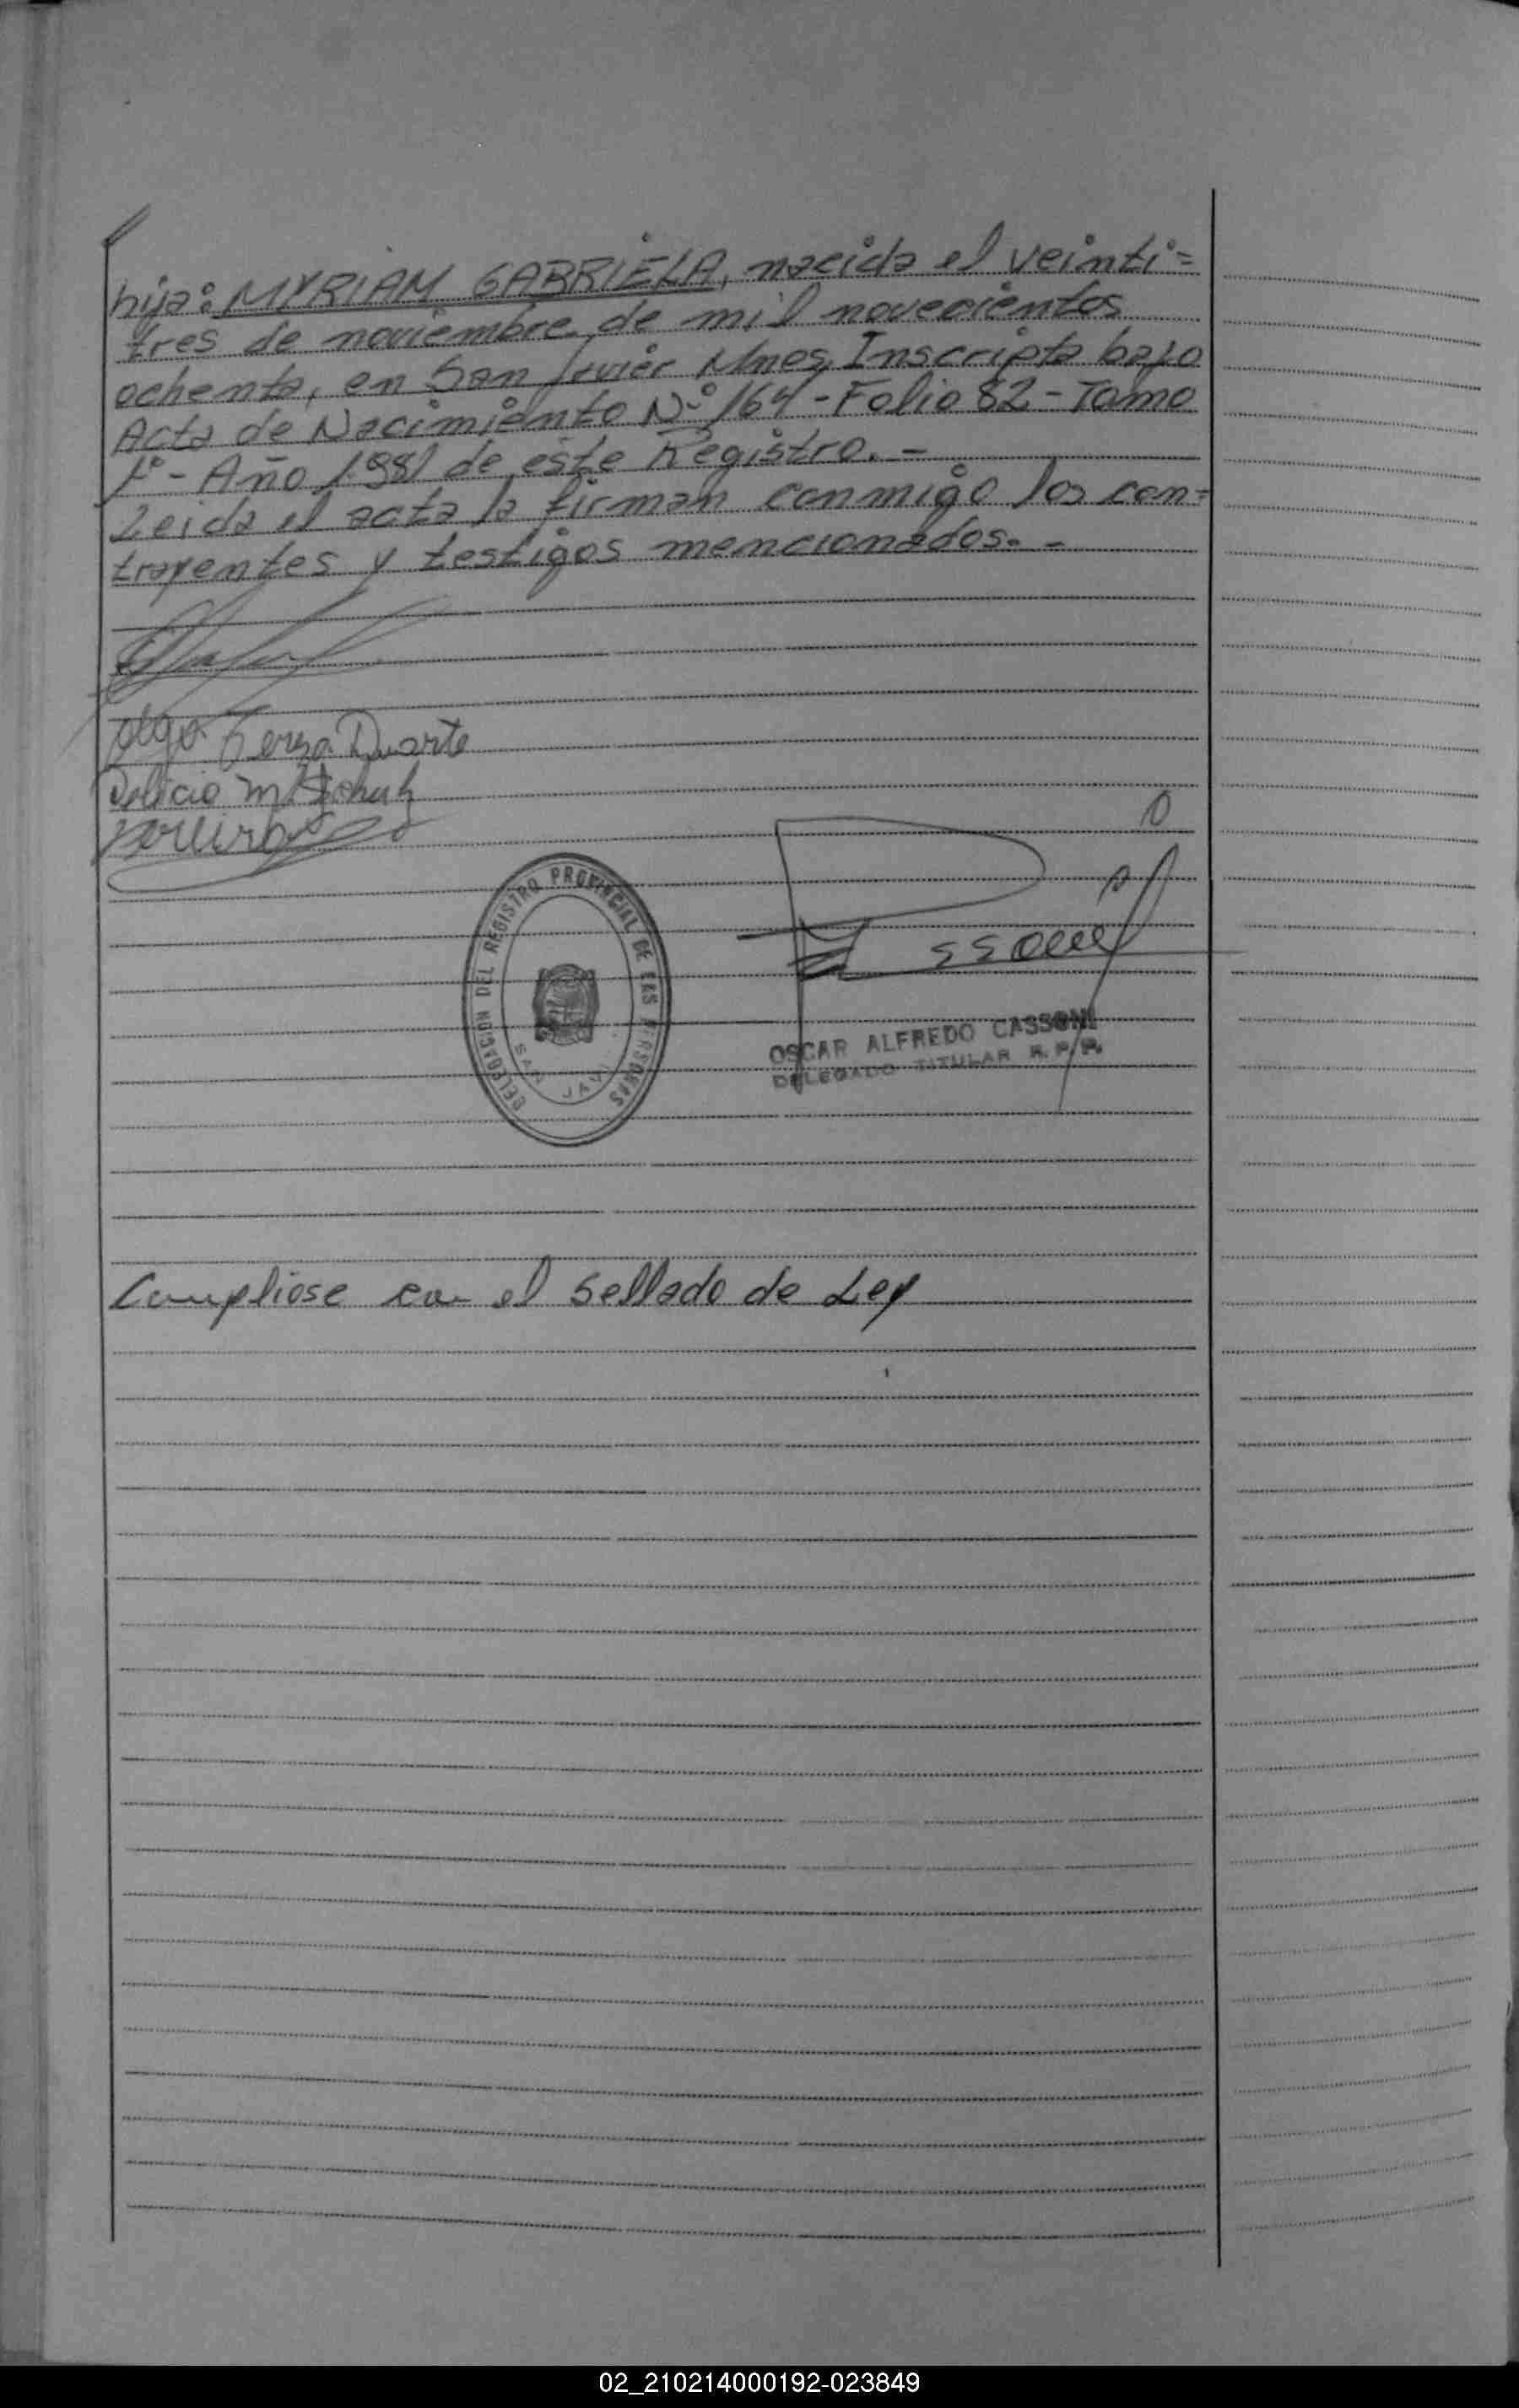 hija: MYRIAM GABRIELA, nacida el veinti=
tres de noviembre de mil novecientos
ochenta, en San Javier Mnes, Inscripta bajo
Acta de Nacimiento Nº 164 - Folio 82 - Tomo
1º - Año 1.981 de este Registro. -
Leida el acta la firman conmigo los con=
trayentes y testigos mencionados. -
Olga Tereza Duarte
Delicio M
DELEGACION DEL REGISTRO PROVINCIAL DE LAS PERSONAS
SAN JAVI
OSCAR ALFREDO CASSONI
DELEGADO TITULAR R. P. P.
Cumpliose con el Sellado de Ley
02_210214000192-023849